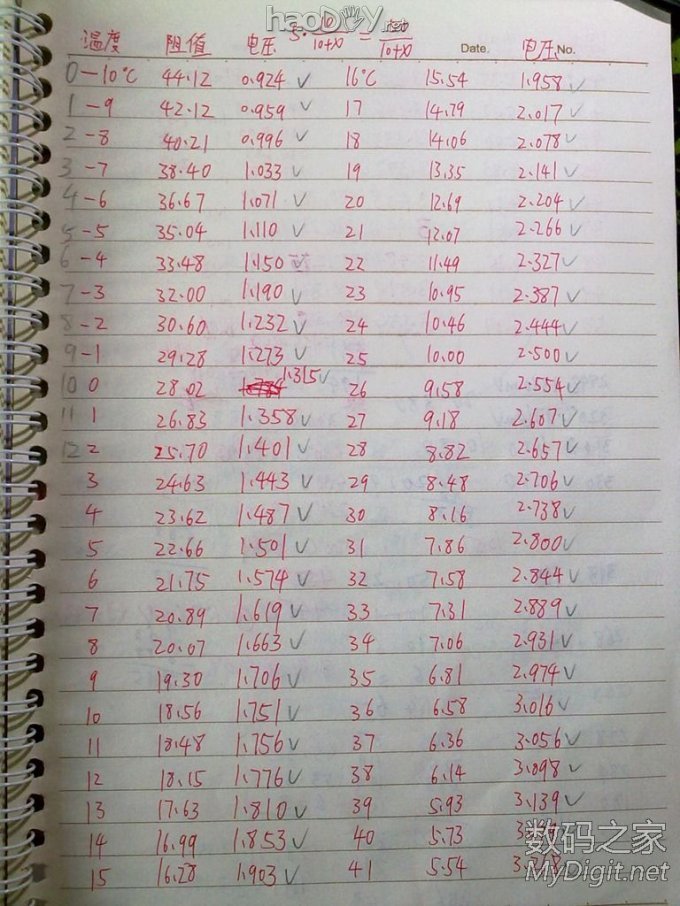 haoDIY.net
5·10/10+x = 50/10+x
温度 阻值 电压 Date. 电压 No.
0 -10℃ 44.12 0.924 ✓ 16℃ 15.54 1.958 ✓
1 -9 42.12 0.959 ✓ 17 14.79 2.017 ✓
2 -8 40.21 0.996 ✓ 18 14.06 2.078 ✓
3 -7 38.40 1.033 ✓ 19 13.35 2.141 ✓
4 -6 36.67 1.071 ✓ 20 12.69 2.204 ✓
5 -5 35.04 1.110 ✓ 21 12.07 2.266 ✓
6 -4 33.48 1.150 22 11.49 2.327 ✓
7 -3 32.00 1.190 ✓ 23 10.95 2.387 ✓
8 -2 30.60 1.232 ✓ 24 10.46 2.444 ✓
9 -1 29.28 1.273 ✓ 25 10.00 2.500 ✓
10 0 28.02 1.315 ✓ 26 9.58 2.554 ✓
11 1 26.83 1.358 ✓ 27 9.18 2.607 ✓
12 2 25.70 1.401 ✓ 28 8.82 2.657 ✓
3 24.63 1.443 ✓ 29 8.48 2.706 ✓
4 23.62 1.487 ✓ 30 8.16 2.738 ✓
5 22.66 1.501 ✓ 31 7.86 2.800 ✓
6 21.75 1.574 ✓ 32 7.58 2.844 ✓
7 20.89 1.619 ✓ 33 7.31 2.889 ✓
8 20.07 1.663 ✓ 34 7.06 2.931 ✓
9 19.30 1.706 ✓ 35 6.81 2.974 ✓
10 18.56 1.751 ✓ 36 6.58 3.016 ✓
11 18.48 1.756 ✓ 37 6.36 3.056 ✓
12 18.15 1.776 ✓ 38 6.14 3.098 ✓
13 17.63 1.810 ✓ 39 5.93 3.139 ✓
14 16.99 1.853 ✓ 40 5.73
15 16.28 1.903 ✓ 41 5.54
数码之家
MyDigit.net